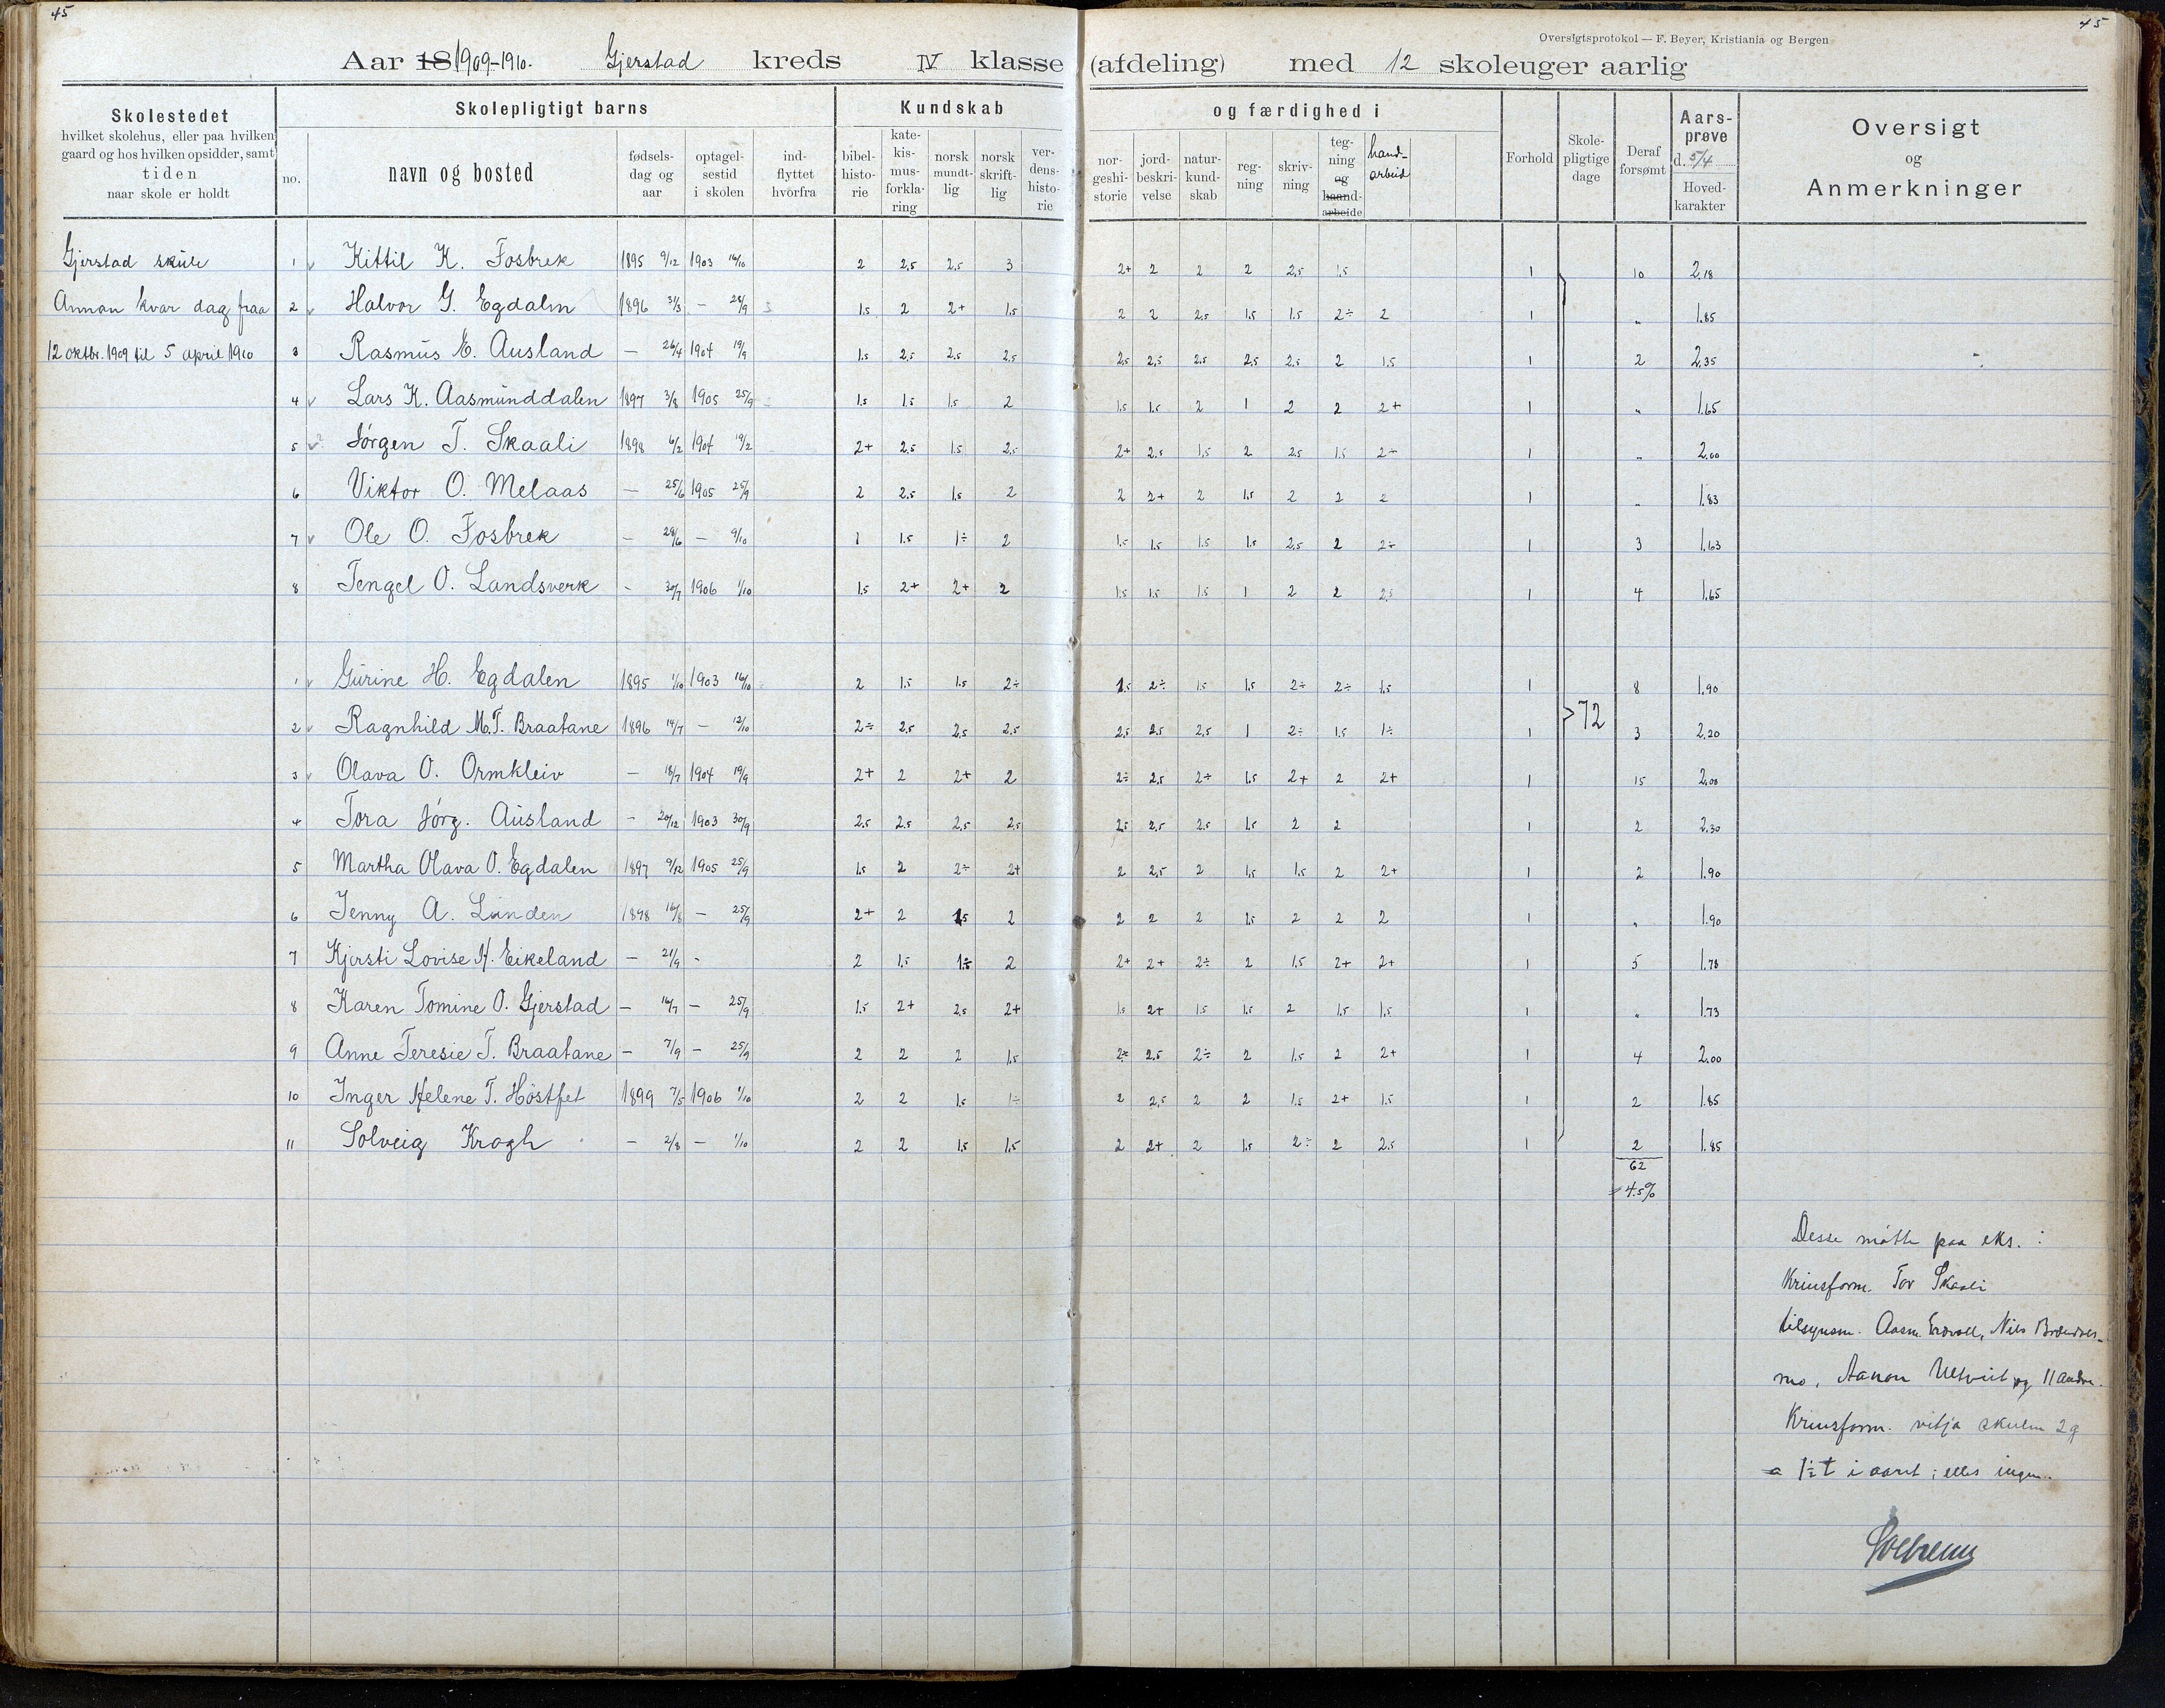 45
45
Oversigtsprotokol — F. Beyer, Kristiania og Bergen
Aar 18 1909-1910. Gjerstad kreds IV klasse (afdeling) med 12 skoleuger aarlig
Skolestedet hvilket skolehus, eller paa hvilken gaard og hos hvilken opsidder, samt tiden naar skole er holdt
Skolepligtigt barns
no. navn og bosted fødsels-dag og aar optagel-sestid i skolen ind-flyttet hvorfra
Kundskab og færdighed i
bibel-histo-rie kate-kis-mus-forkla-ring norsk mundt-lig norsk skrift-lig ver-dens-histo-rie nor-geshi-storie jord-beskri-velse natur-kund-skab reg-ning skriv-ning teg-ning og haand-arbeide hand-arbeid
Forhold Skole-pligtige dage Deraf forsømt Aars-prøve d. 5/4 Hoved-karakter
Oversigt og Anmerkninger
Gjerstad skule
Annan kvar dag fraa
12 oktbr. 1909 til 5 april 1910
1 Kittil K. Fosbrek 1895 9/12 1903 16/10 2 2,5 2,5 3 2+ 2 2 2 2,5 1,5 1 10 2,18
2 Halvor G. Egdalen 1896 31/3 — 28/9 1,5 2 2+ 1,5 2 2 2,5 1,5 1,5 2÷ 2 1 „ 1,85
3 Rasmus E. Ausland — 26/4 1904 19/9 1,5 2,5 2,5 2,5 2,5 2,5 2,5 2,5 2,5 2 1,5 1 2 2,35
4 Lars K. Aasmunddalen 1897 3/8 1905 25/9 1,5 1,5 1,5 2 1,5 1,5 2 1 2 2 2+ 1 „ 1,65
5 Jörgen T. Skaali 1898 6/2 1904 19/2 2+ 2,5 1,5 2,5 2+ 2,5 1,5 2 2,5 1,5 2÷ 1 „ 2,00
6 Viktor O. Melaas — 25/6 1905 25/9 2 2,5 1,5 2 2 2+ 2 1,5 2 2 2 1 „ 1,83
7 Ole O. Fosbrek — 28/6 — 9/10 1 1,5 1÷ 2 1,5 1,5 1,5 1,5 2,5 2 2÷ 1 3 1,63
8 Tengel O. Landsverk - 30/7 1906 1/10 1,5 2+ 2+ 2 1,5 1,5 1,5 1 2 2 2,5 1 4 1,65
1 Gurine H. Egdalen 1895 1/10 1903 16/10 2 1,5 1,5 2÷ 1,5 2÷ 1,5 1,5 2÷ 2÷ 1,5 1 8 1,90
72
2 Ragnhild M.T. Braatane 1896 14/7 — 12/10 2÷ 2,5 2,5 2,5 2,5 2,5 2,5 1 2÷ 1,5 1÷ 1 3 2,20
3 Olava O. Ormkleiv — 18/7 1904 19/9 2+ 2 2+ 2 2÷ 2,5 2÷ 1,5 2+ 2 2+ 1 15 2,00
4 Tora Jörg. Ausland - 20/12 1903 30/9 2,5 2,5 2,5 2,5 2,5 2,5 2,5 1,5 2 2 1 2 2,30
5 Martha Olava O. Egdalen 1897 9/12 1905 25/9 1,5 2 2÷ 2+ 2 2,5 2 1,5 1,5 2 2+ 1 2 1,90
6 Jenny A. Lunden 1898 16/8 — 25/9 2+ 2 1,5 2 2 2 2 1,5 2 2 2 1 „ 1,90
7 Kjersti Lovise H. Eikeland — 21/9 - 2 1,5 1÷ 2 2+ 2+ 2÷ 2 1,5 2+ 2+ 1 5 1,78
8 Karen Tomine O. Gjerstad — 16/7 — 25/9 1,5 2+ 2,5 2+ 1,5 2+ 1,5 1,5 2 1,5 1,5 1 „ 1,73
9 Anne Teresie T. Braatane — 7/9 — 25/9 2 2 2 1,5 2÷ 2,5 2÷ 2 1,5 2 2+ 1 4 2,00
10 Inger Helene T. Höstfet 1899 7/5 1906 1/10 2 2 1,5 1÷ 2 2,5 2 2 1,5 2+ 1,5 1 2 1,85
11 Solveig Krogh — 2/8 — 1/10 2 2 1,5 1,5 2 2+ 2 1,5 2÷ 2 2,5 1 2 1,85
62
= 4.5%
Desse mötte paa eks. :
Krinsform. Tor Skaali
tilsynsm. Aasm. Nils
mo, Aanon og 11 andre.
Krinsform. vitja skulen 2 g
a 1½ t i aaret ; elles ingen.